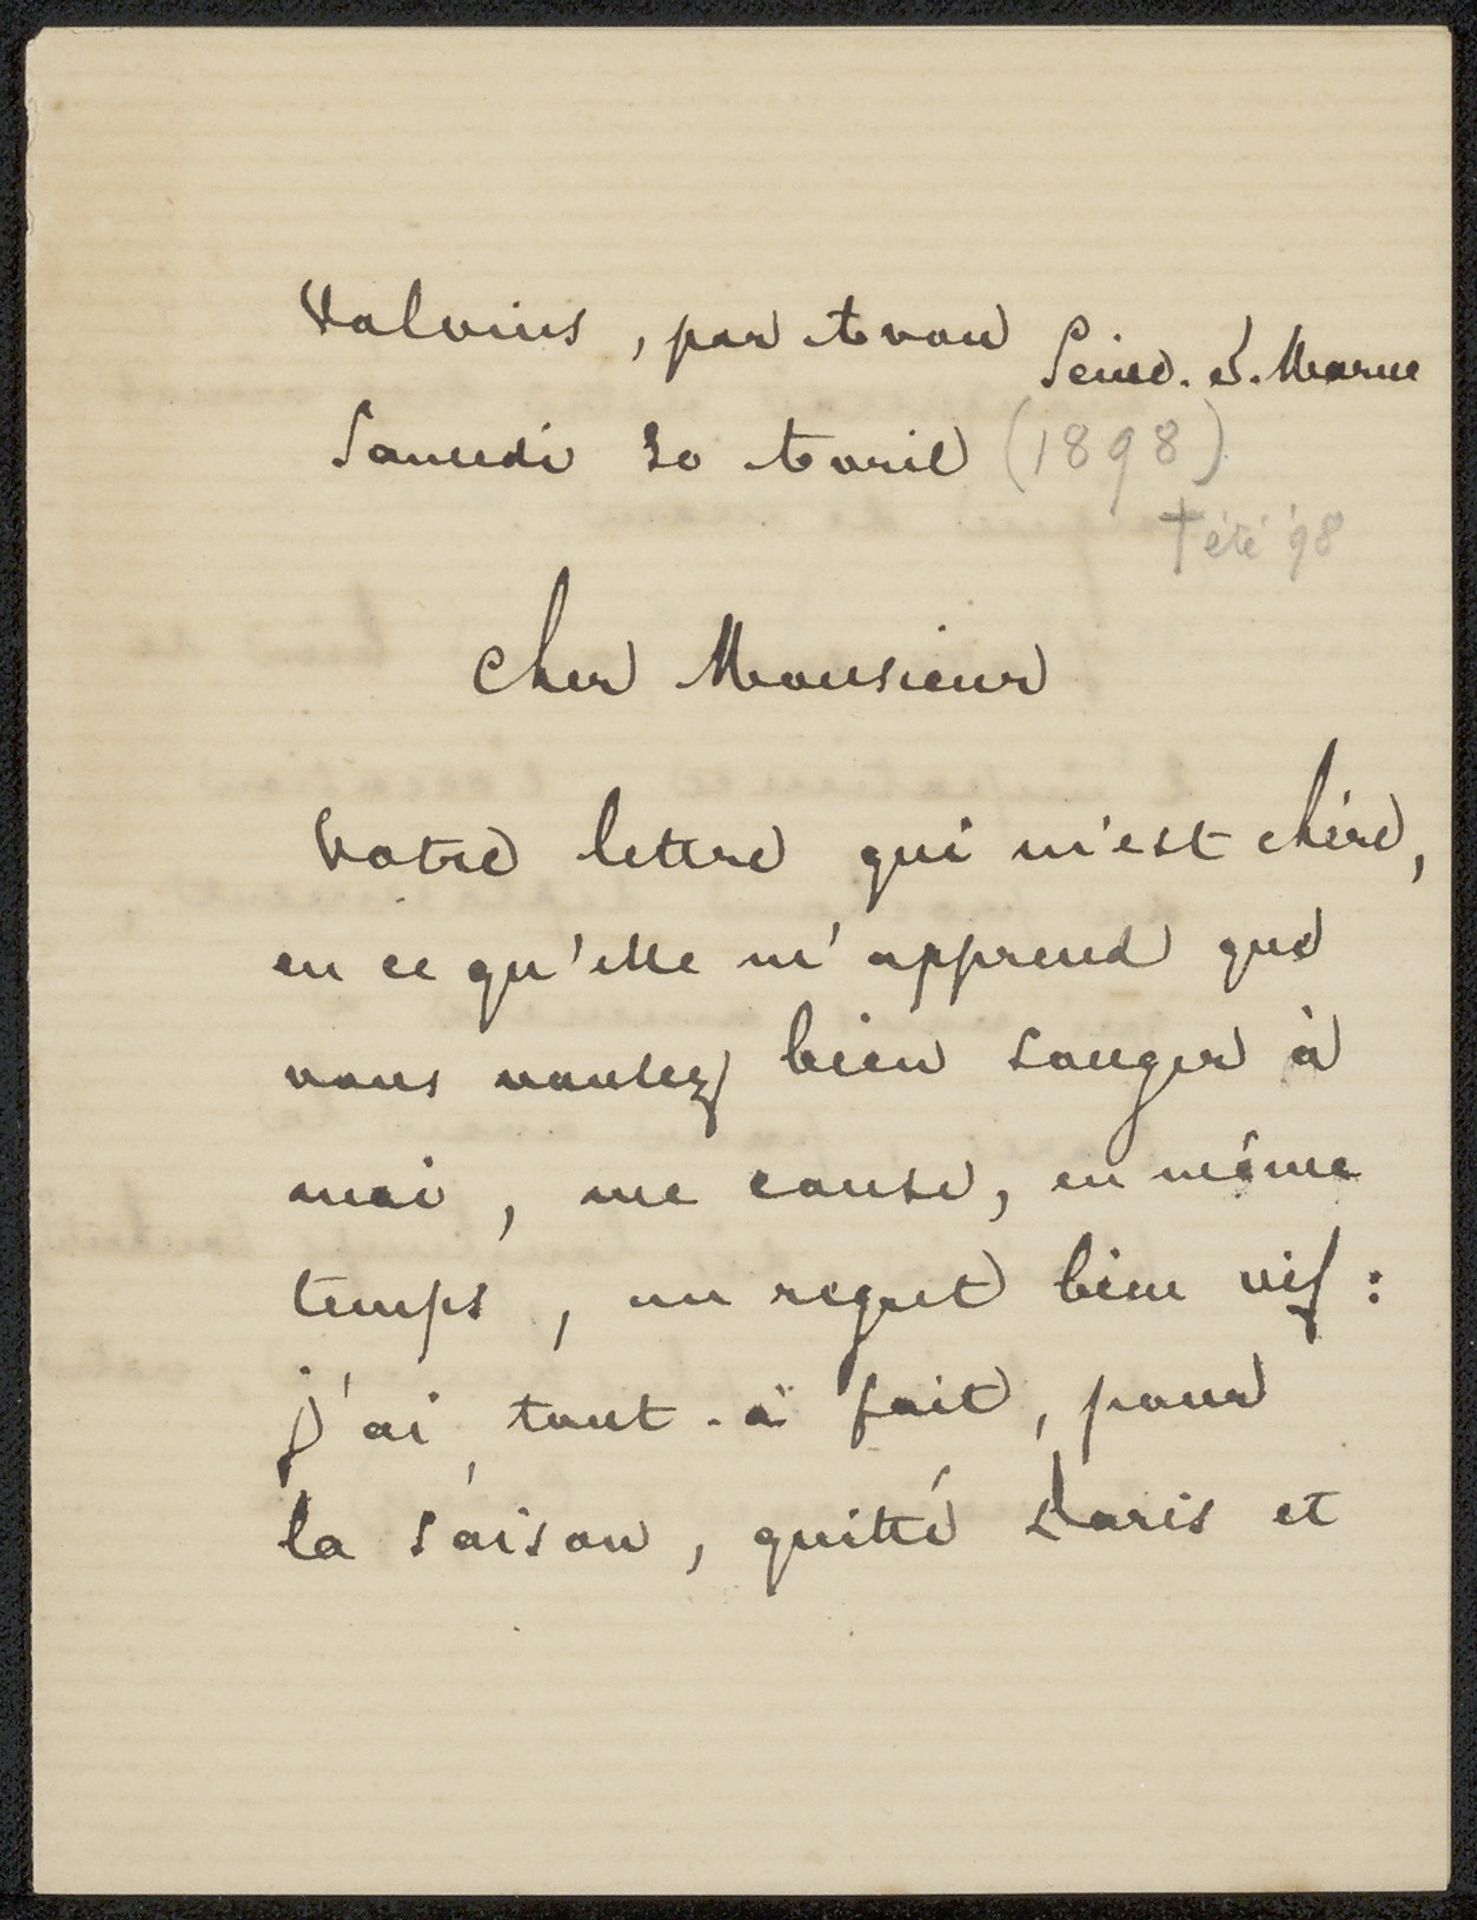 Valvins, par Avon
Seine.&.Marne
Samedi 30 Avril (1898)
† été '98
Cher Monsieur
Votre lettre qui m'est chère,
en ce qu'elle m'apprend que
vous voulez bien songer à
moi, me cause, en même
temps, un regret bien vif :
j'ai tout-à fait, pour
la saison, quitté Paris et